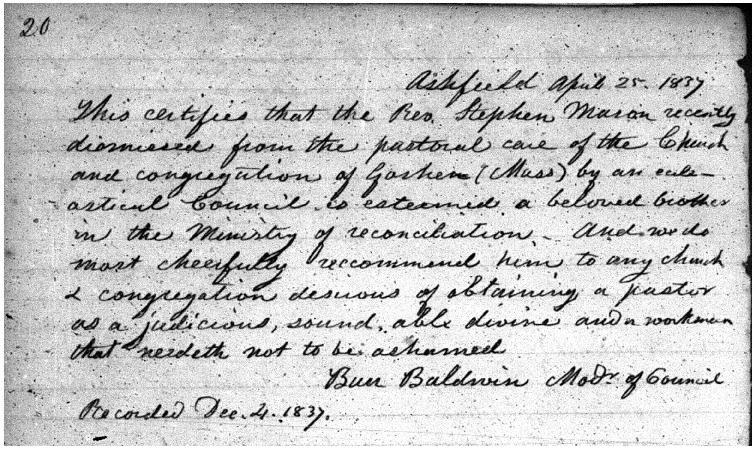 20
Ashfield April 25. 1837
This certifies that the Rev. Stephen Mason recently
dismissed from the pastoral care of the Church
and congregation of Goshen (Mass) by an ecle-
astical Council is esteemed a beloved brother
in the Ministry of reconciliation - And we do
most cheerfully reccommend him to any church
& congregation desirous of obtaining a pastor
as a judicious, sound, able divine and a workman
that needeth not to be ashamed
Burr Baldwin Modr. of Council
Recorded Dec. 4. 1837.